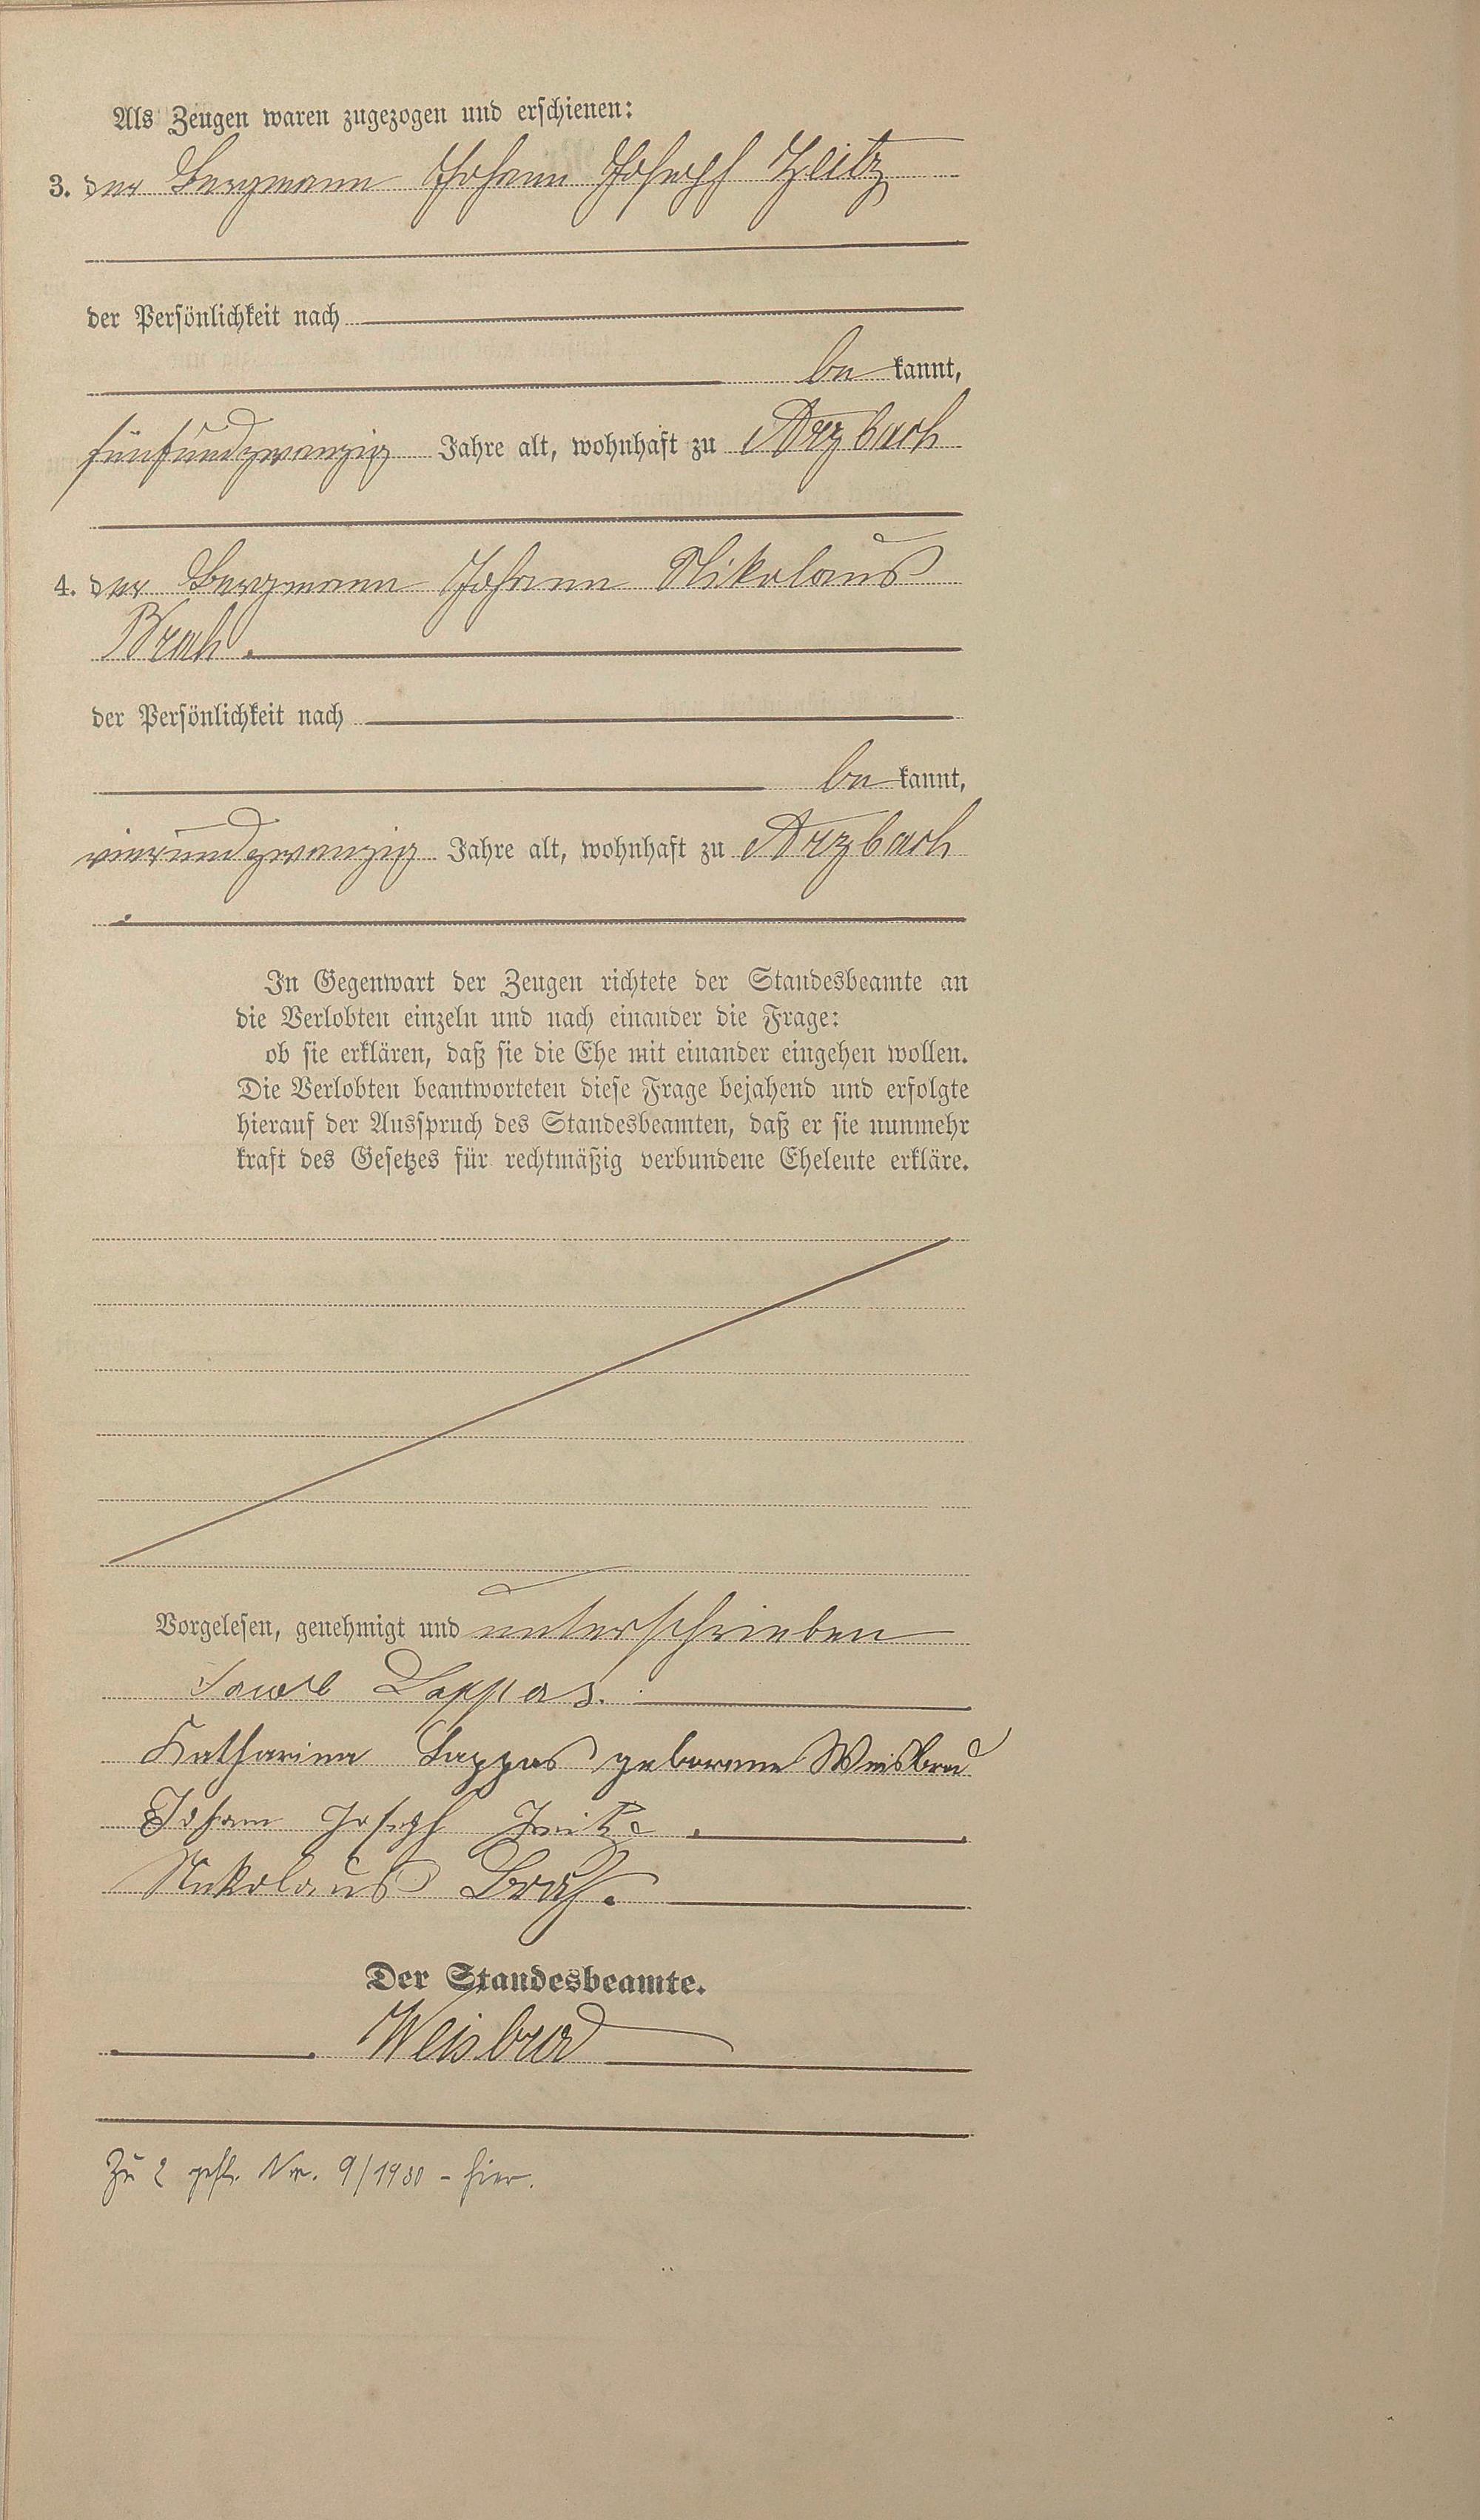 Als Zeugen waren zugezogen und erschienen:
3. der Bergmann Johann Joseph Zeitz
der Persönlichkeit nach
be kannt,
fünfundzwanzig Jahre alt, wohnhaft zu Arzbach
4. der Bergmann Johann Nikolaus
Brah.
der Persönlichkeit nach
be kannt,
vierundzwanzig Jahre alt, wohnhaft zu Arzbach
In Gegenwart der Zeugen richtete der Standesbeamte an
die Verlobten einzeln und nach einander die Frage:
ob sie erklären, daß sie die Ehe mit einander eingehen wollen.
Die Verlobten beantworteten diese Frage bejahend und erfolgte
hierauf der Ausspruch des Standesbeamten, daß er sie nunmehr
kraft des Gesetzes für rechtmäßig verbundene Eheleute erkläre.
Vorgelesen, genehmigt und unterschrieben
Lappas.
Katharina Lappas geborene Weisbrod
Johann Joseph
Nikolaus Brah.
Der Standesbeamte.
Weisbrod
Zu 2 gest. Nr. 9/1930 - hier.